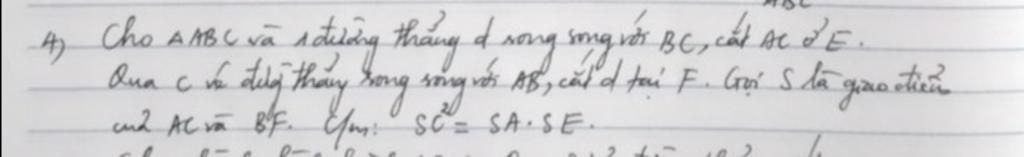 4) Cho △ABC và 1 đường thẳng d song song với BC, cắt AC ở E.
Qua C vẽ đường thẳng song song với AB, cắt d tại F. Gọi S là giao điểm
của AC và BF. C/m: SC² = SA.SE.